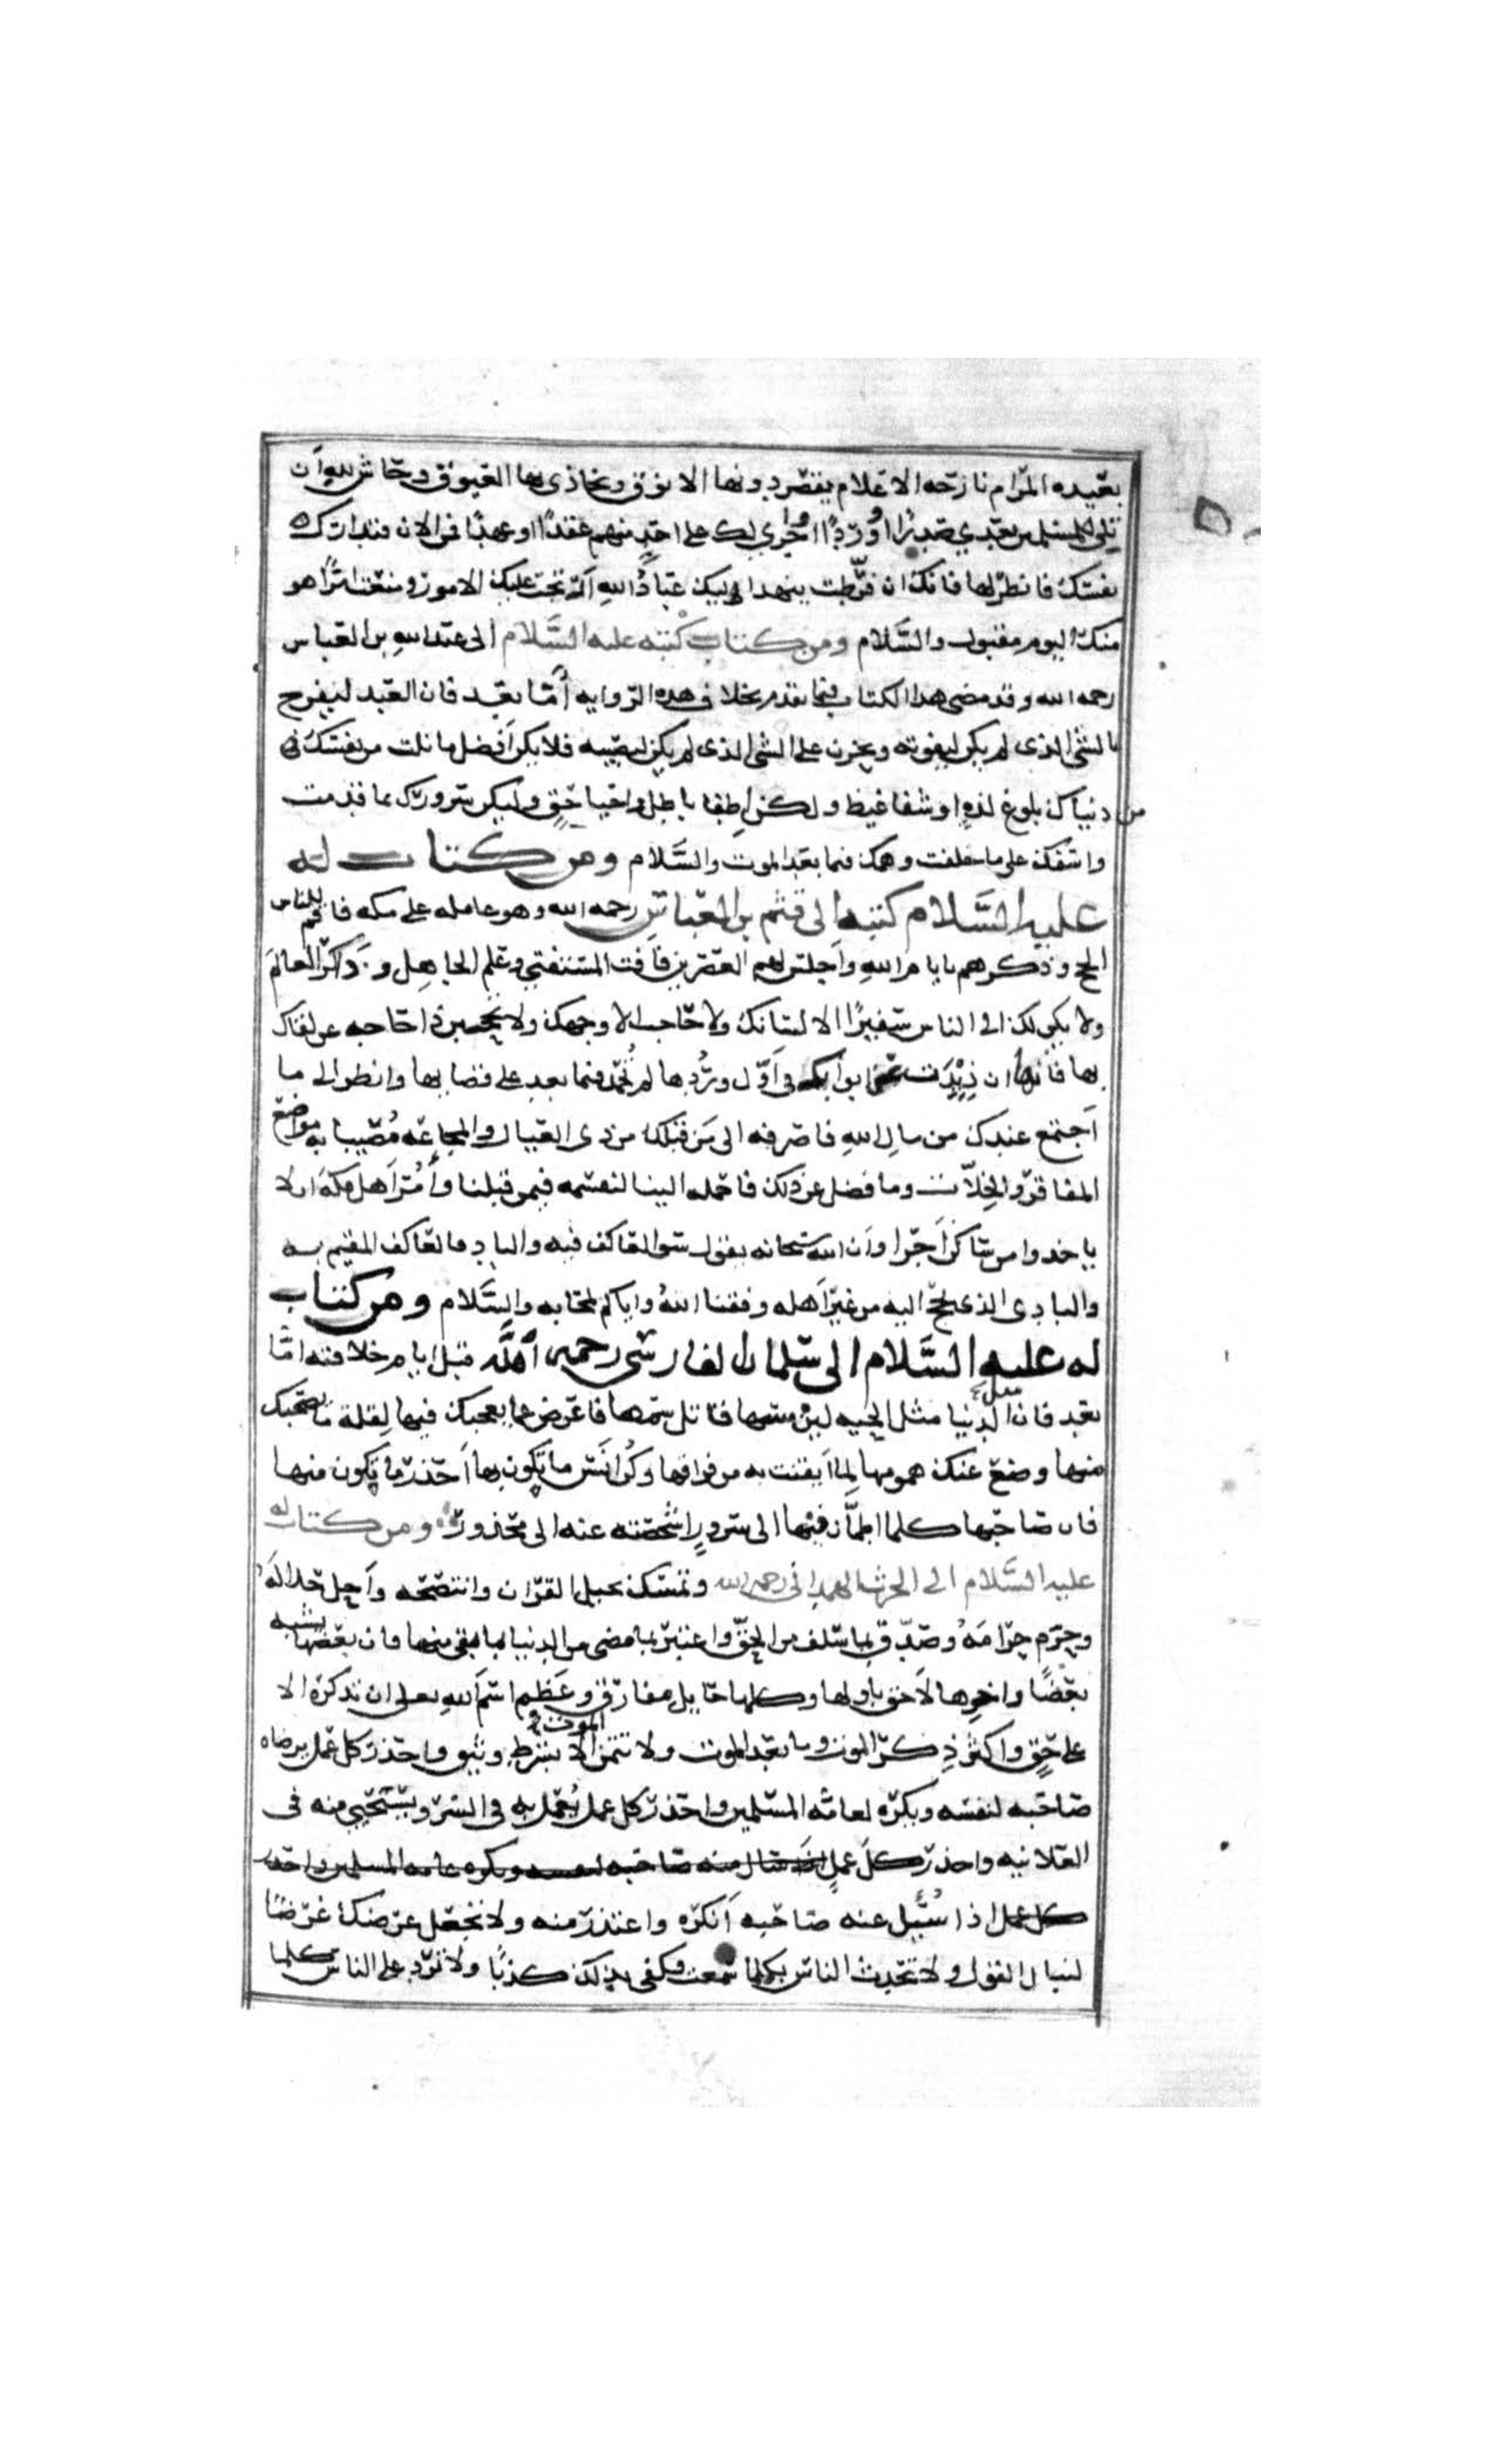 بعيده المرام نازحه الاعلام يقصر دونها الانوق ويحاذى بها العيوق وحاش لله ان
تلي للمسلمين بعدي صدرا او وردا او اجري لك على احد منهم عقدا او عهدا فمن الان فتدارك
نفسك فانظر لها فانك ان فرطت حتى ينهد اليك عباد الله ارتجت عليك الامور ومنعت امرا هو
منك اليوم مقبول والسلام ومن كتاب كتبه عليه السلام الى عبدالله بن العباس
رحمه الله وقد مضى هذا الكتاب فيما تقدم بخلاف هذه الروايه أما بعد فان العبد ليفرح
بالشى الذى لم يكن ليفوته ويحزن على الشى الذى لم يكن ليصيبه فلا يكن أفضل ما نلت من نفسك فى
من دنياك بلوغ لذه او شفا غيظ ولكن اطفا باطل واحيا حق وليكن سرورك بما قدمت
واسفك على ما خلفت وهمك فيما بعد الموت والسلام ومن كتاب له
عليه السلام كتبه الى قثم بن العباس رحمه الله وهو عامله على مكه فاقم للناس
الحج وذكرهم بايام الله واجلس لهم العصرين فأفت المستفتي وعلم الجاهل وذاكر العالم
ولا يكن لك الى الناس سفيرا الا لسانك ولا حاجب الا وجهك ولا تحجبن ذا حاجه عن لقاك
بها فانها ان ذيدت عن ابوابك فى أول وردها لم تحمد فيما بعد على قضايها وانظر الى ما
اجتمع عندك من مال الله فاصرفه الى من قبلك من ذى العيال والمجاعه مصيبا به مواضع
المفاقر والخلات وما فضل عن ذلك فاحمله الينا لنقسمه فيمن قبلنا وأمر أهل مكه ان لا
ياخذوا من ساكن أجرا وان الله سبحانه يقول سوا العاكف فيه والباد فالعاكف المقيم به
والبادى الذى يحج اليه من غير أهله وفقنا الله واياكم لمحابه والسلام ومن كتاب
له عليه السلام الى سلمان الفارسى رحمه الله قبل ايام خلافته اما
بعد فان مثل الدنيا مثل الحيه لين مسها قاتل سمها فاعرض عما يعجبك فيها لقلة ما يصحبك
منها وضع عنك همومها لما ايقنت به من فراقها وكن انس ما تكون بها احذر ما تكون منها
فان صاحبها كلما اطمأن فيها الى سرور اشخصته عنه الى محذور ومن كتاب له
عليه السلام الى الحرث الهمدانى رحمه الله وتمسك بحبل القرآن وانتصحه وأحل حلاله
وحرم حرامه وصدق بما سلف من الحق واعتبر بما مضى من الدنيا لما بقى منها فان بعضها يشبه
بعضا واخرها لاحق باولها وكلها حايل مفارق وعظم اسم الله تعالى ان تذكره الا
على حق واكثر ذكر الموت وما بعد الموت ولا تتمن الموت الا بشرط وثيق واحذر كل عمل يرضاه
صاحبه لنفسه ويكره لعامه المسلمين واحذر كل عمل يعمل به فى السر ويستحيى منه فى
العلانيه واحذر كل عمل
كل عمل اذا سئل عنه صاحبه أنكره واعتذر منه ولا تجعل عرضك غرضا
لنبال القول ولا تحدث الناس بكلما سمعت فكفى بذلك كذبا ولا ترد على الناس كلما